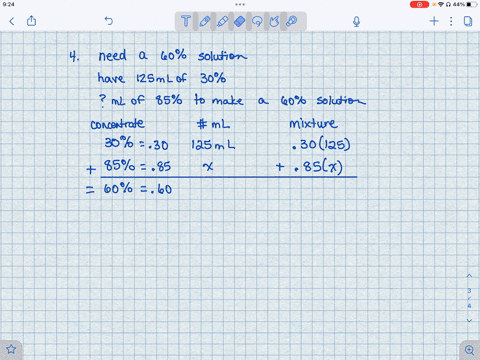 9:24
44%
4. need a 60% solution
have 125mL of 30%
? mL of 85% to make a 60% solution
concentrate # mL mixture
30% = .30 125 mL .30(125)
+ 85% = .85 x + .85(x)
= 60% = .60
3
/
4